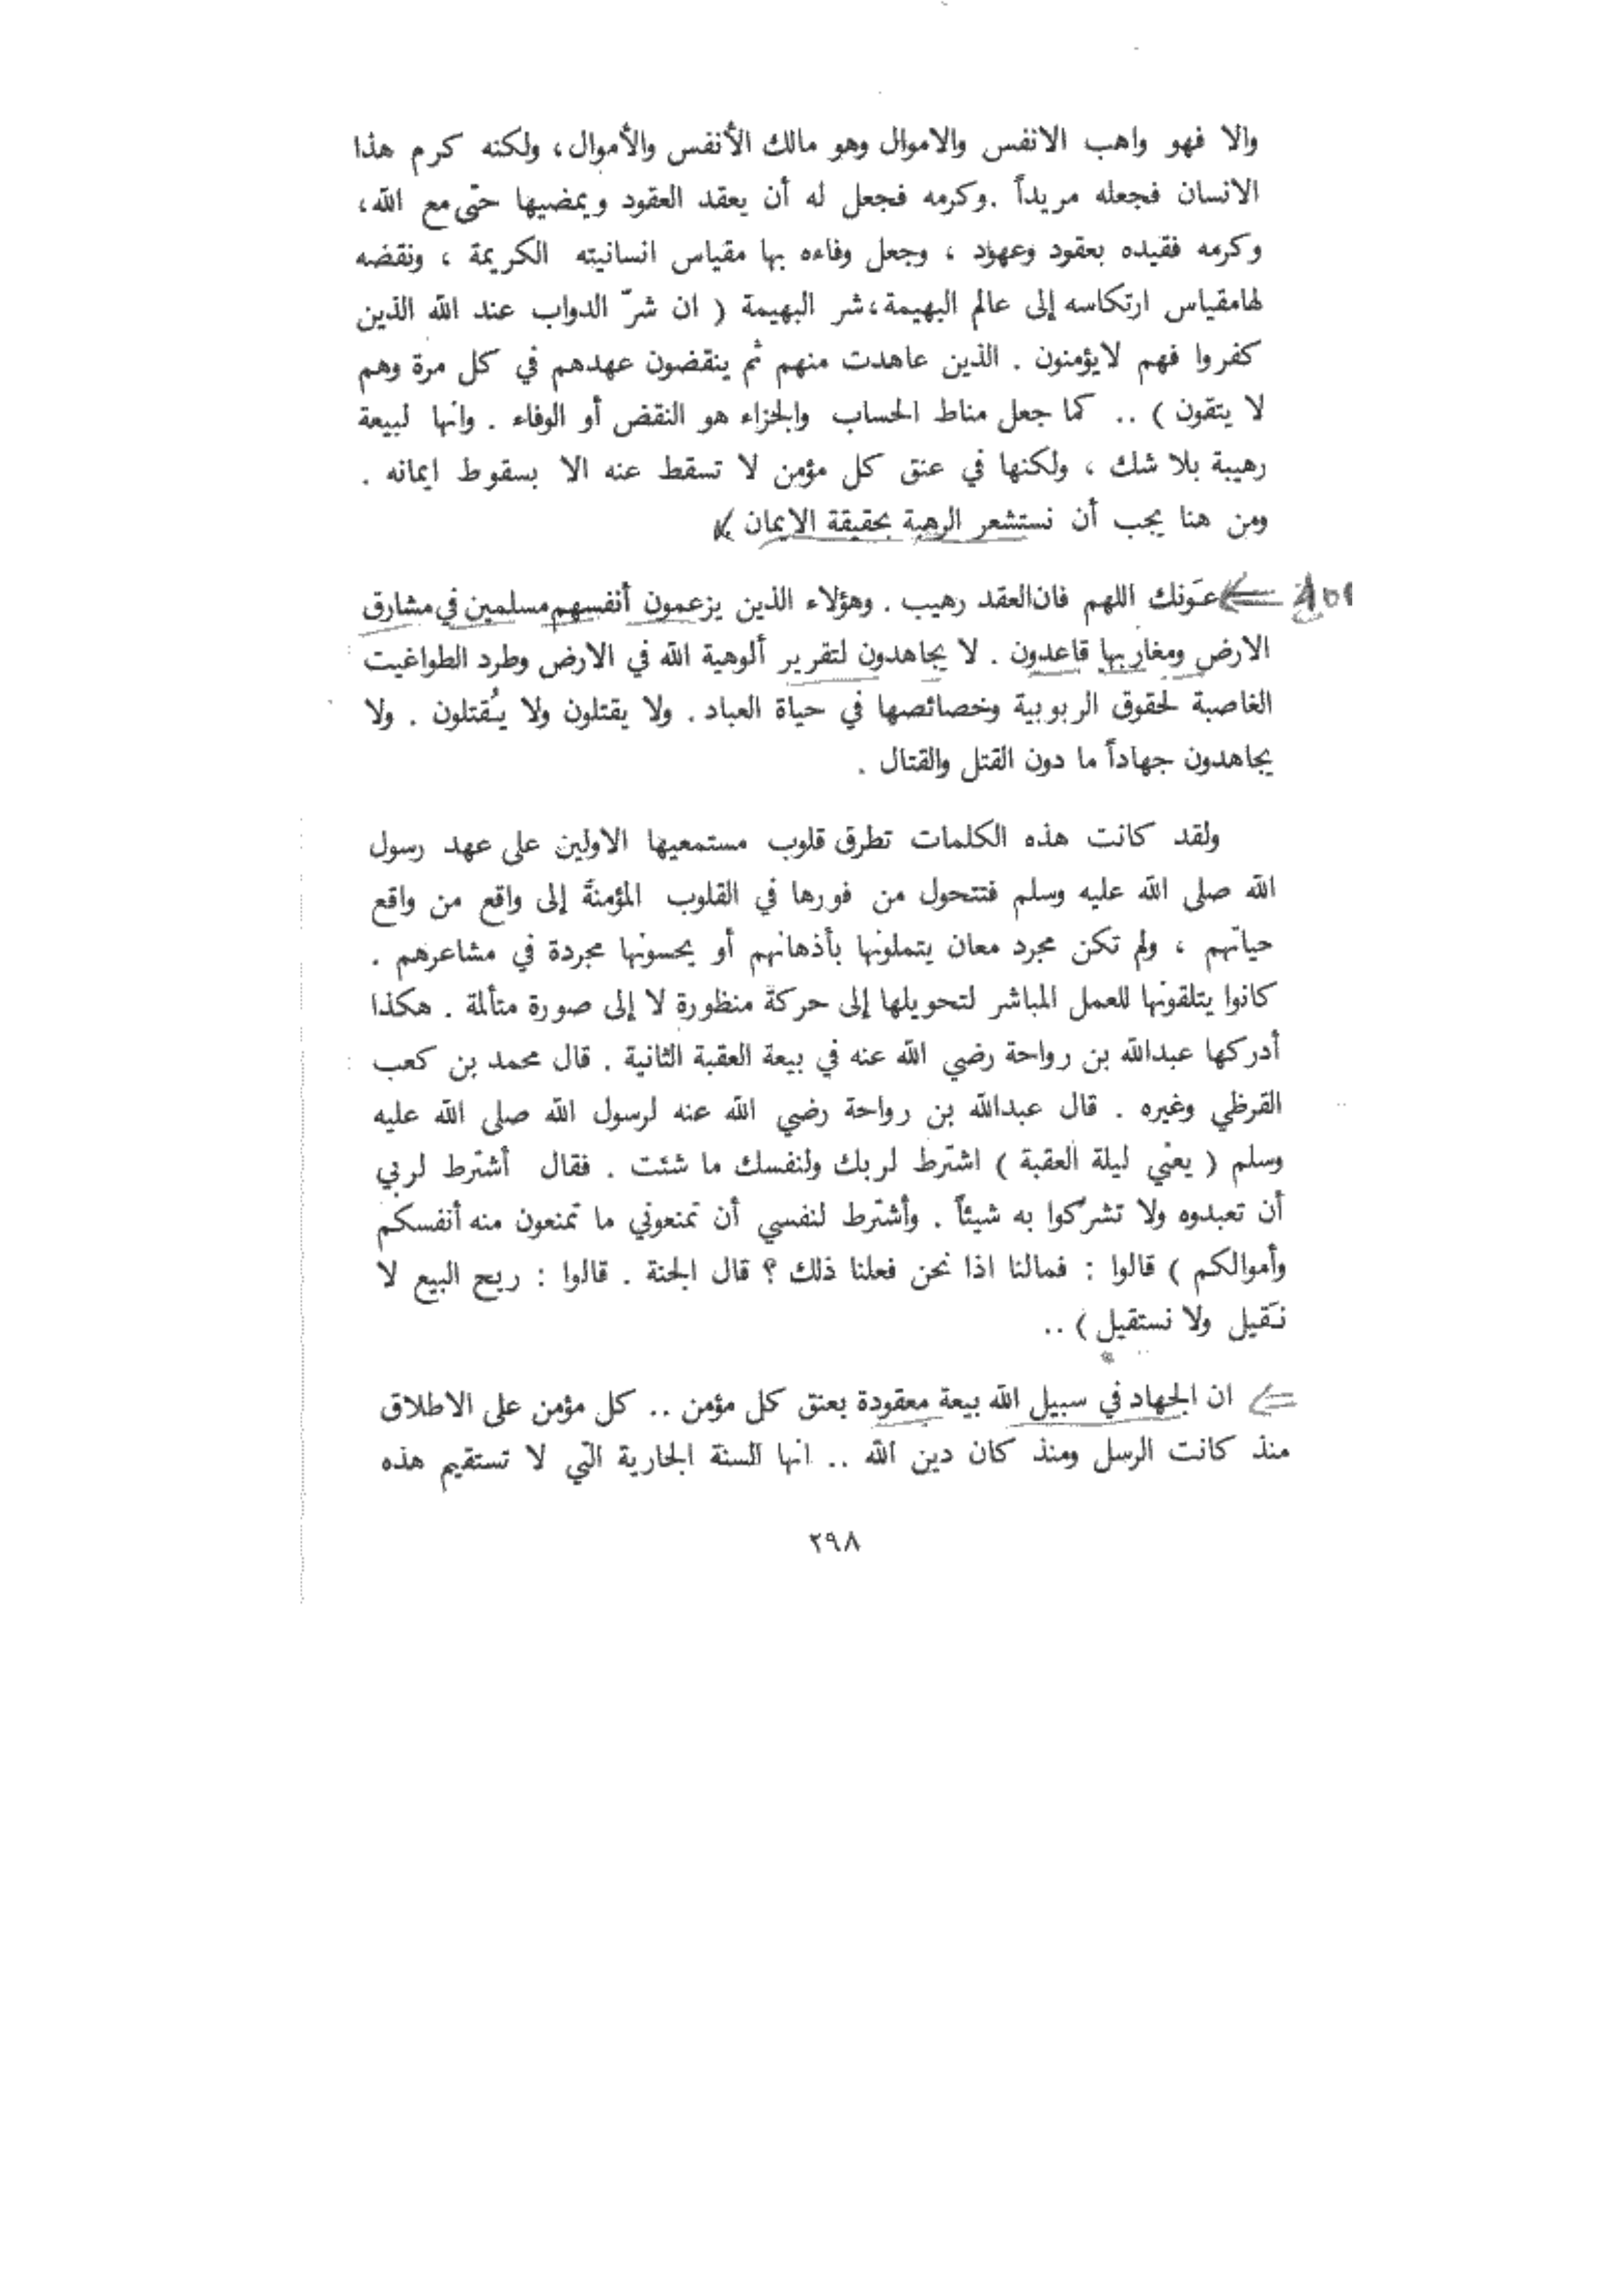 والا فهو واهب الانفس والاموال وهو مالك الأنفس والأموال، ولكنه كرم هذا
الانسان فجعله مريداً .وكرمه فجعل له أن يعقد العقود ويمضيها حتى مع الله،
وكرمه فقيده بعقود وعهود ، وجعل وفاءه بها مقياس انسانيته الكريمة ، ونقضه
لهامقياس ارتكاسه إلى عالم البهيمة،شر البهيمة ( ان شرّ الدواب عند الله الذين
كفروا فهم لايؤمنون . الذين عاهدت منهم ثم ينقضون عهدهم في كل مرة وهم
لا يتقون ) .. كما جعل مناط الحساب والجزاء هو النقض أو الوفاء . وانها لبيعة
رهيبة بلا شك ، ولكنها في عنق كل مؤمن لا تسقط عنه الا بسقوط ايمانه .
ومن هنا يجب أن نستشعر الرهبة بحقيقة الايمان
عَونك اللهم فان العقد رهيب . وهؤلاء الذين يزعمون أنفسهم مسلمين في مشارق
الارض ومغاربها قاعدون . لا يجاهدون لتقرير ألوهية الله في الارض وطرد الطواغيت
الغاصبة لحقوق الربوبية وخصائصها في حياة العباد . ولا يقتلون ولا يُقتلون . ولا
يجاهدون جهاداً ما دون القتل والقتال .
ولقد كانت هذه الكلمات تطرق قلوب مستمعيها الاولين على عهد رسول
الله صلى الله عليه وسلم فتتحول من فورها في القلوب المؤمنة إلى واقع من واقع
حياتهم ، ولم تكن مجرد معان يتملونها بأذهانهم أو يحسونها مجردة في مشاعرهم .
كانوا يتلقونها للعمل المباشر لتحويلها إلى حركة منظورة لا إلى صورة متألمة . هكذا
أدركها عبدالله بن رواحة رضي الله عنه في بيعة العقبة الثانية . قال محمد بن كعب
القرظي وغيره . قال عبدالله بن رواحة رضي الله عنه لرسول الله صلى الله عليه
وسلم ( يعني ليلة العقبة ) اشترط لربك ولنفسك ما شئت . فقال أشترط لربي
أن تعبدوه ولا تشركوا به شيئاً . وأشترط لنفسي أن تمنعوني ما تمنعون منه أنفسكم
وأموالكم ) قالوا : فمالنا اذا نحن فعلنا ذلك ؟ قال الجنة . قالوا : ربح البيع لا
نَقيل ولا نستقيل ) ..
ان الجهاد في سبيل الله بيعة معقودة بعنق كل مؤمن .. كل مؤمن على الاطلاق
منذ كانت الرسل ومنذ كان دين الله .. انها السنة الجارية التي لا تستقيم هذه
٢٩٨